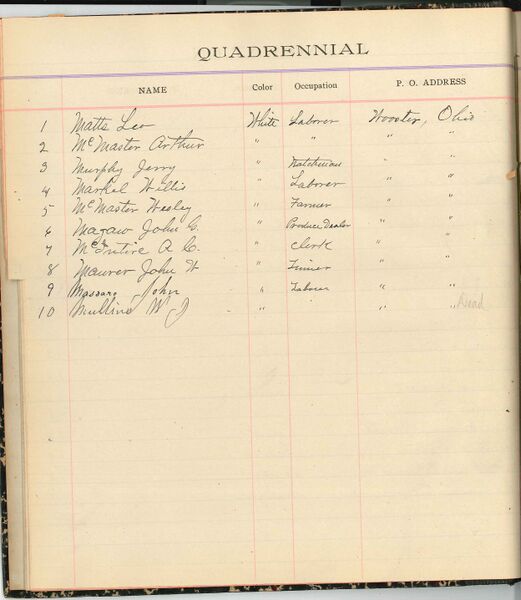 QUADRENNIAL
NAME Color Occupation P. O. ADDRESS
1 Matts Leo White Laborer Wooster, Ohio
2 McMaster Arthur " " " "
3 Murphy Jerry " Watchman " "
4 Markel Willis " Laborer " "
5 McMaster Wesley " Farmer " "
6 Magaw John C. " Produce Dealer " "
7 McIntire A C. " Clerk " "
8 Maurer John W " " "
9 Massaro John " Laborer " "
10 Mullins W J " " " Dead